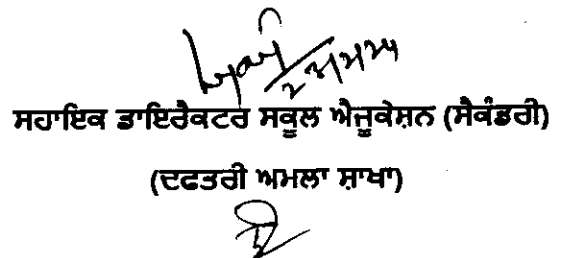 ਸਹਾਇਕ ਡਾਇਰੈਕਟਰ ਸਕੂਲ ਐਜੂਕੇਸ਼ਨ (ਸੈਕੰਡਰੀ)
(ਦਫਤਰੀ ਅਮਲਾ ਸ਼ਾਖਾ)